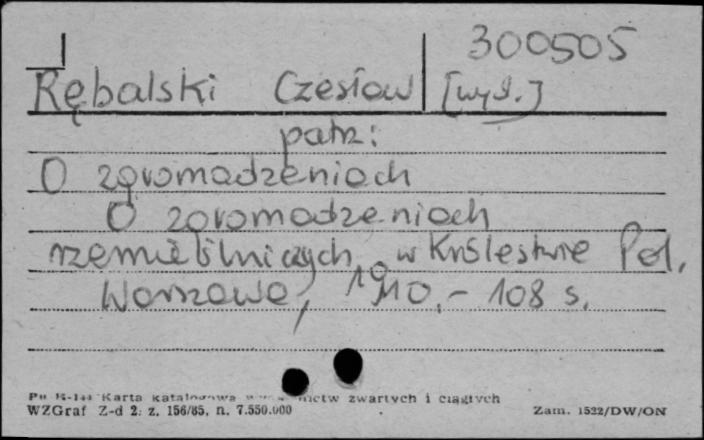 300505
Rębalski Czesław [wyd.]
patrz:
O zgromadzeniach
O zgromadzeniach
rzemieślniczych w Królestwie Pol.
Warszawa, 1910.- 108 s.
Pu K-144 Karta katalogowa zwartych i ciągłych
WZGraf Z-d 2. z. 156/65. n. 7.550.000
Zam. 1522/DW/ON